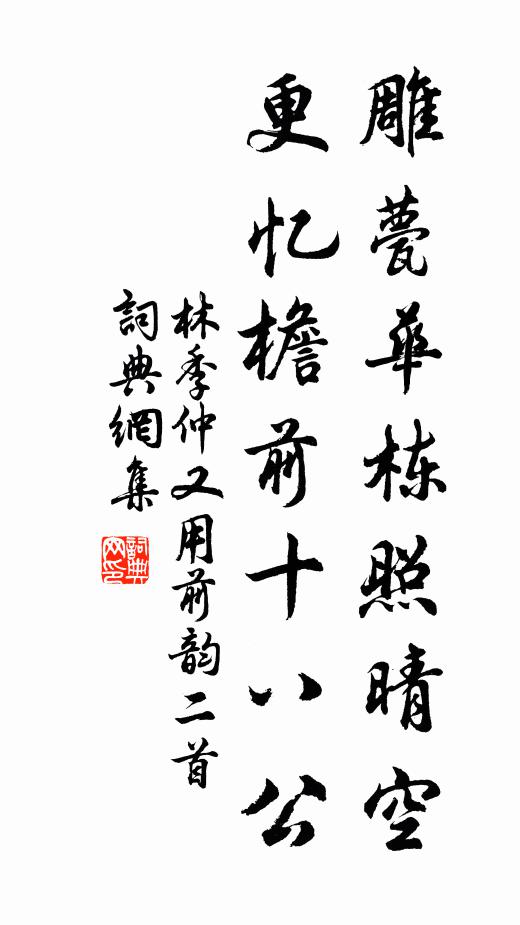 雕甍华栋照晴空
更忆檐前十八公
林季仲又用前韵二首
詞典網集
詞典网印